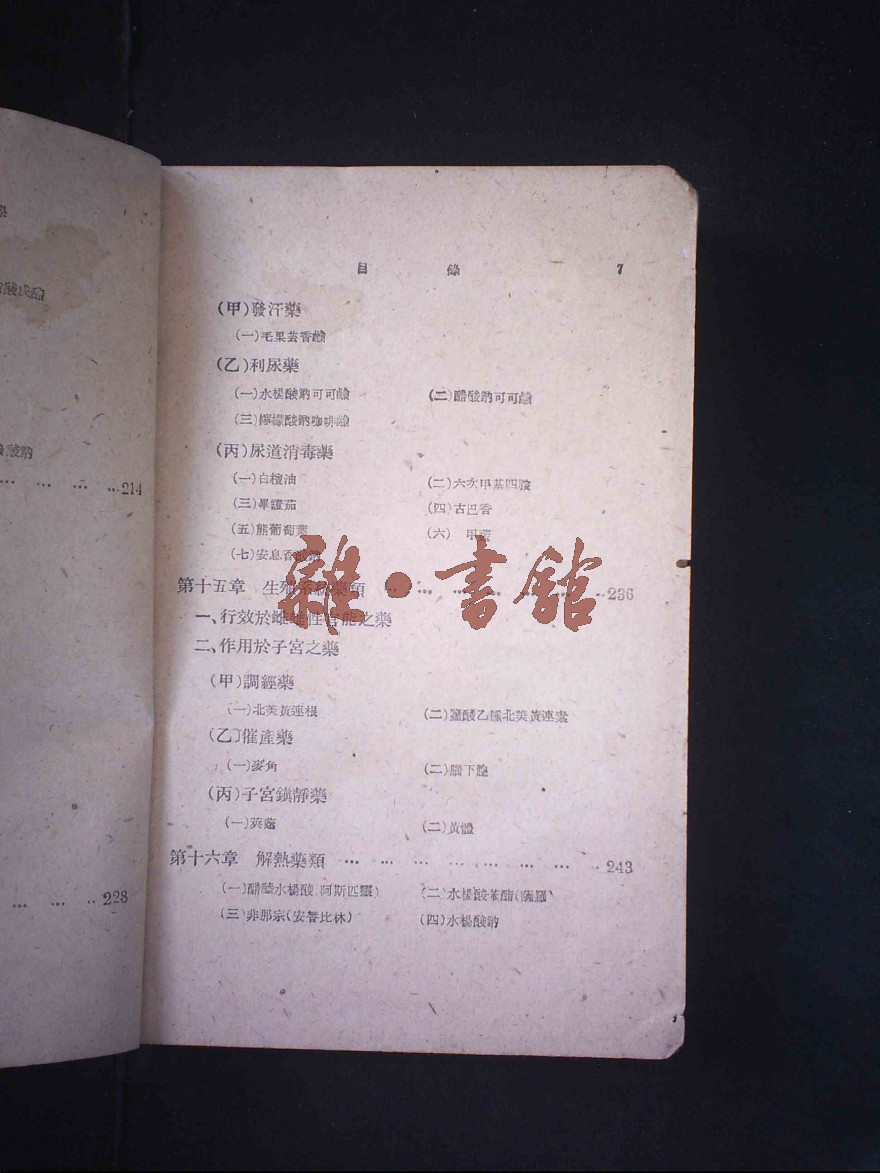 214
228
目錄 7
(甲)發汗藥
(一)毛果芸香鹼
(乙)利尿藥
(一)水楊酸鈉可可鹼 (二)醋酸鈉可可鹼
(三)檸檬酸鈉咖啡鹼
(丙)尿道消毒藥
(一)白檀油 (二)六次甲基四胺
(三)蓽證茄 (四)古巴香
(五)熊葡萄葉 (六) 甲
(七)安息香酸
第十五章 生殖系統藥類 … … … … … … …236
一、行效於雌雄性官能之藥
二、作用於子宮之藥
(甲)調經藥
(一)北美黃連根 (二)鹽酸乙種北美黃連素
(乙)催產藥
(一)麥角 (二)腦下腺
(丙)子宮鎮靜藥
(一)莢蒾 (二)黃體
第十六章 解熱藥類 … … … … … … … 243
(一)醋醯水楊酸(阿斯匹靈) (二)水楊酸苯酯(薩羅)
(三)非那宗(安替比林) (四)水楊酸鈉
雜·書館